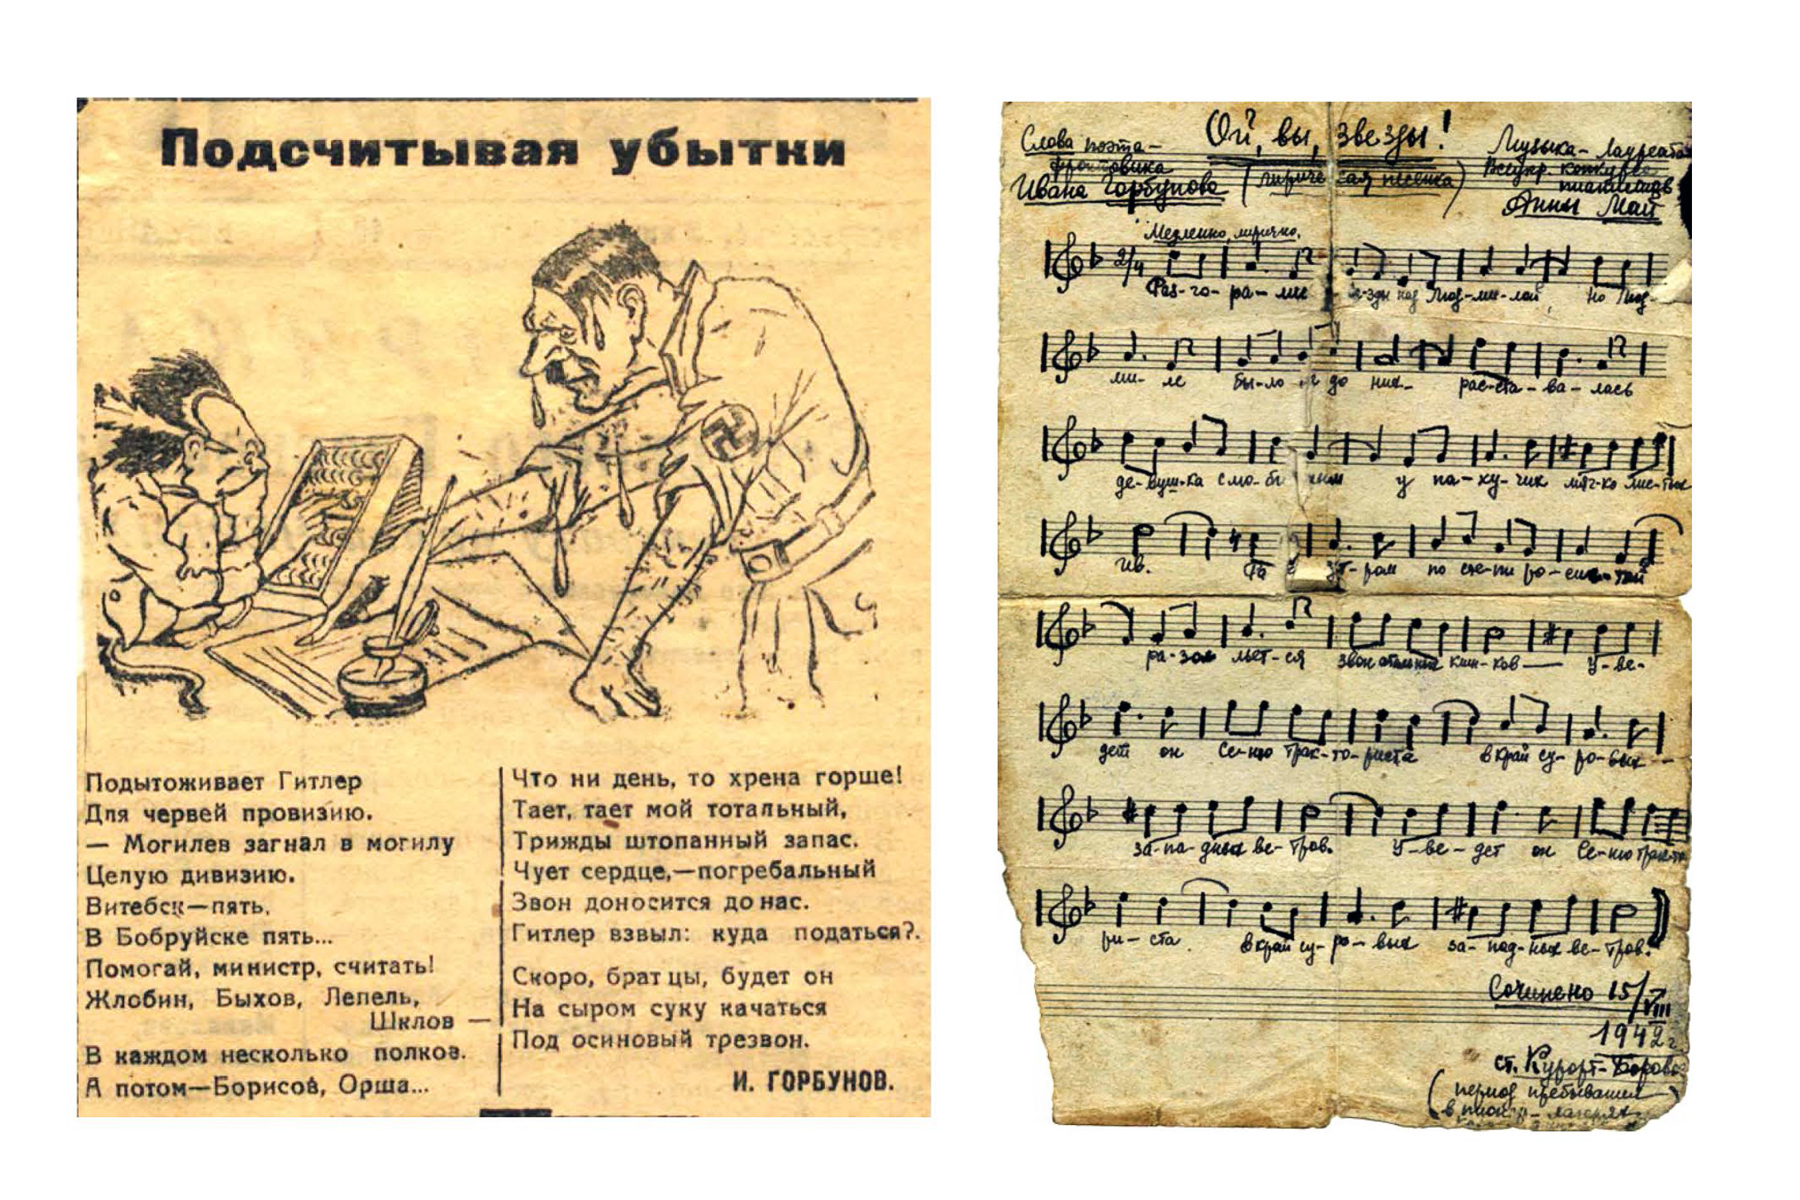 Подсчитывая убытки
Подытоживает Гитлер
Для червей провизию.
— Могилев загнал в могилу
Целую дивизию.
Витебск—пять,
В Бобруйске пять...
Помогай, министр, считать!
Жлобин, Быхов, Лепель,
Шклов —
В каждом несколько полков.
А потом—Борисов, Орша...
Что ни день, то хрена горше!
Тает, тает мой тотальный,
Трижды штопанный запас.
Чует сердце,—погребальный
Звон доносится до нас.
Гитлер взвыл: куда податься?.
Скоро, братцы, будет он
На сыром суку качаться
Под осиновый трезвон.
И. ГОРБУНОВ.
Ой, вы, звезды!
(лирическая песенка)
Слова поэта-
фронтовика
Ивана Горбунова
Музыка- Лауреата
Всеукр. конкурса
пианистов
Анны Май
Медленно, лирично.
2/4
Раз-го-ра-лись зве-зды над Люд-ми-лой, но Люд-
ми-ле бы-ло не до них- рас-ста-ва-лась
де-вуш-ка с лю-би-мым у па-ху-чих мяг-ко лис-тых
ив. по сте-пи ро-сис-той
ра-золь-ет-ся звон стальных клин-ков— У-ве-
дет он Се-ню трак-то-риста в край су-ро-вых -
за-па-дных ве-тров. У-ве-дет он Се-ню тракто-
ри-ста. в край су-ро-вых за-пад-ных ве-тров.
Сочинено 15/VIII
1942 г.
ст. Курорт-Борово
(период пребывания
в пионер-лагерях